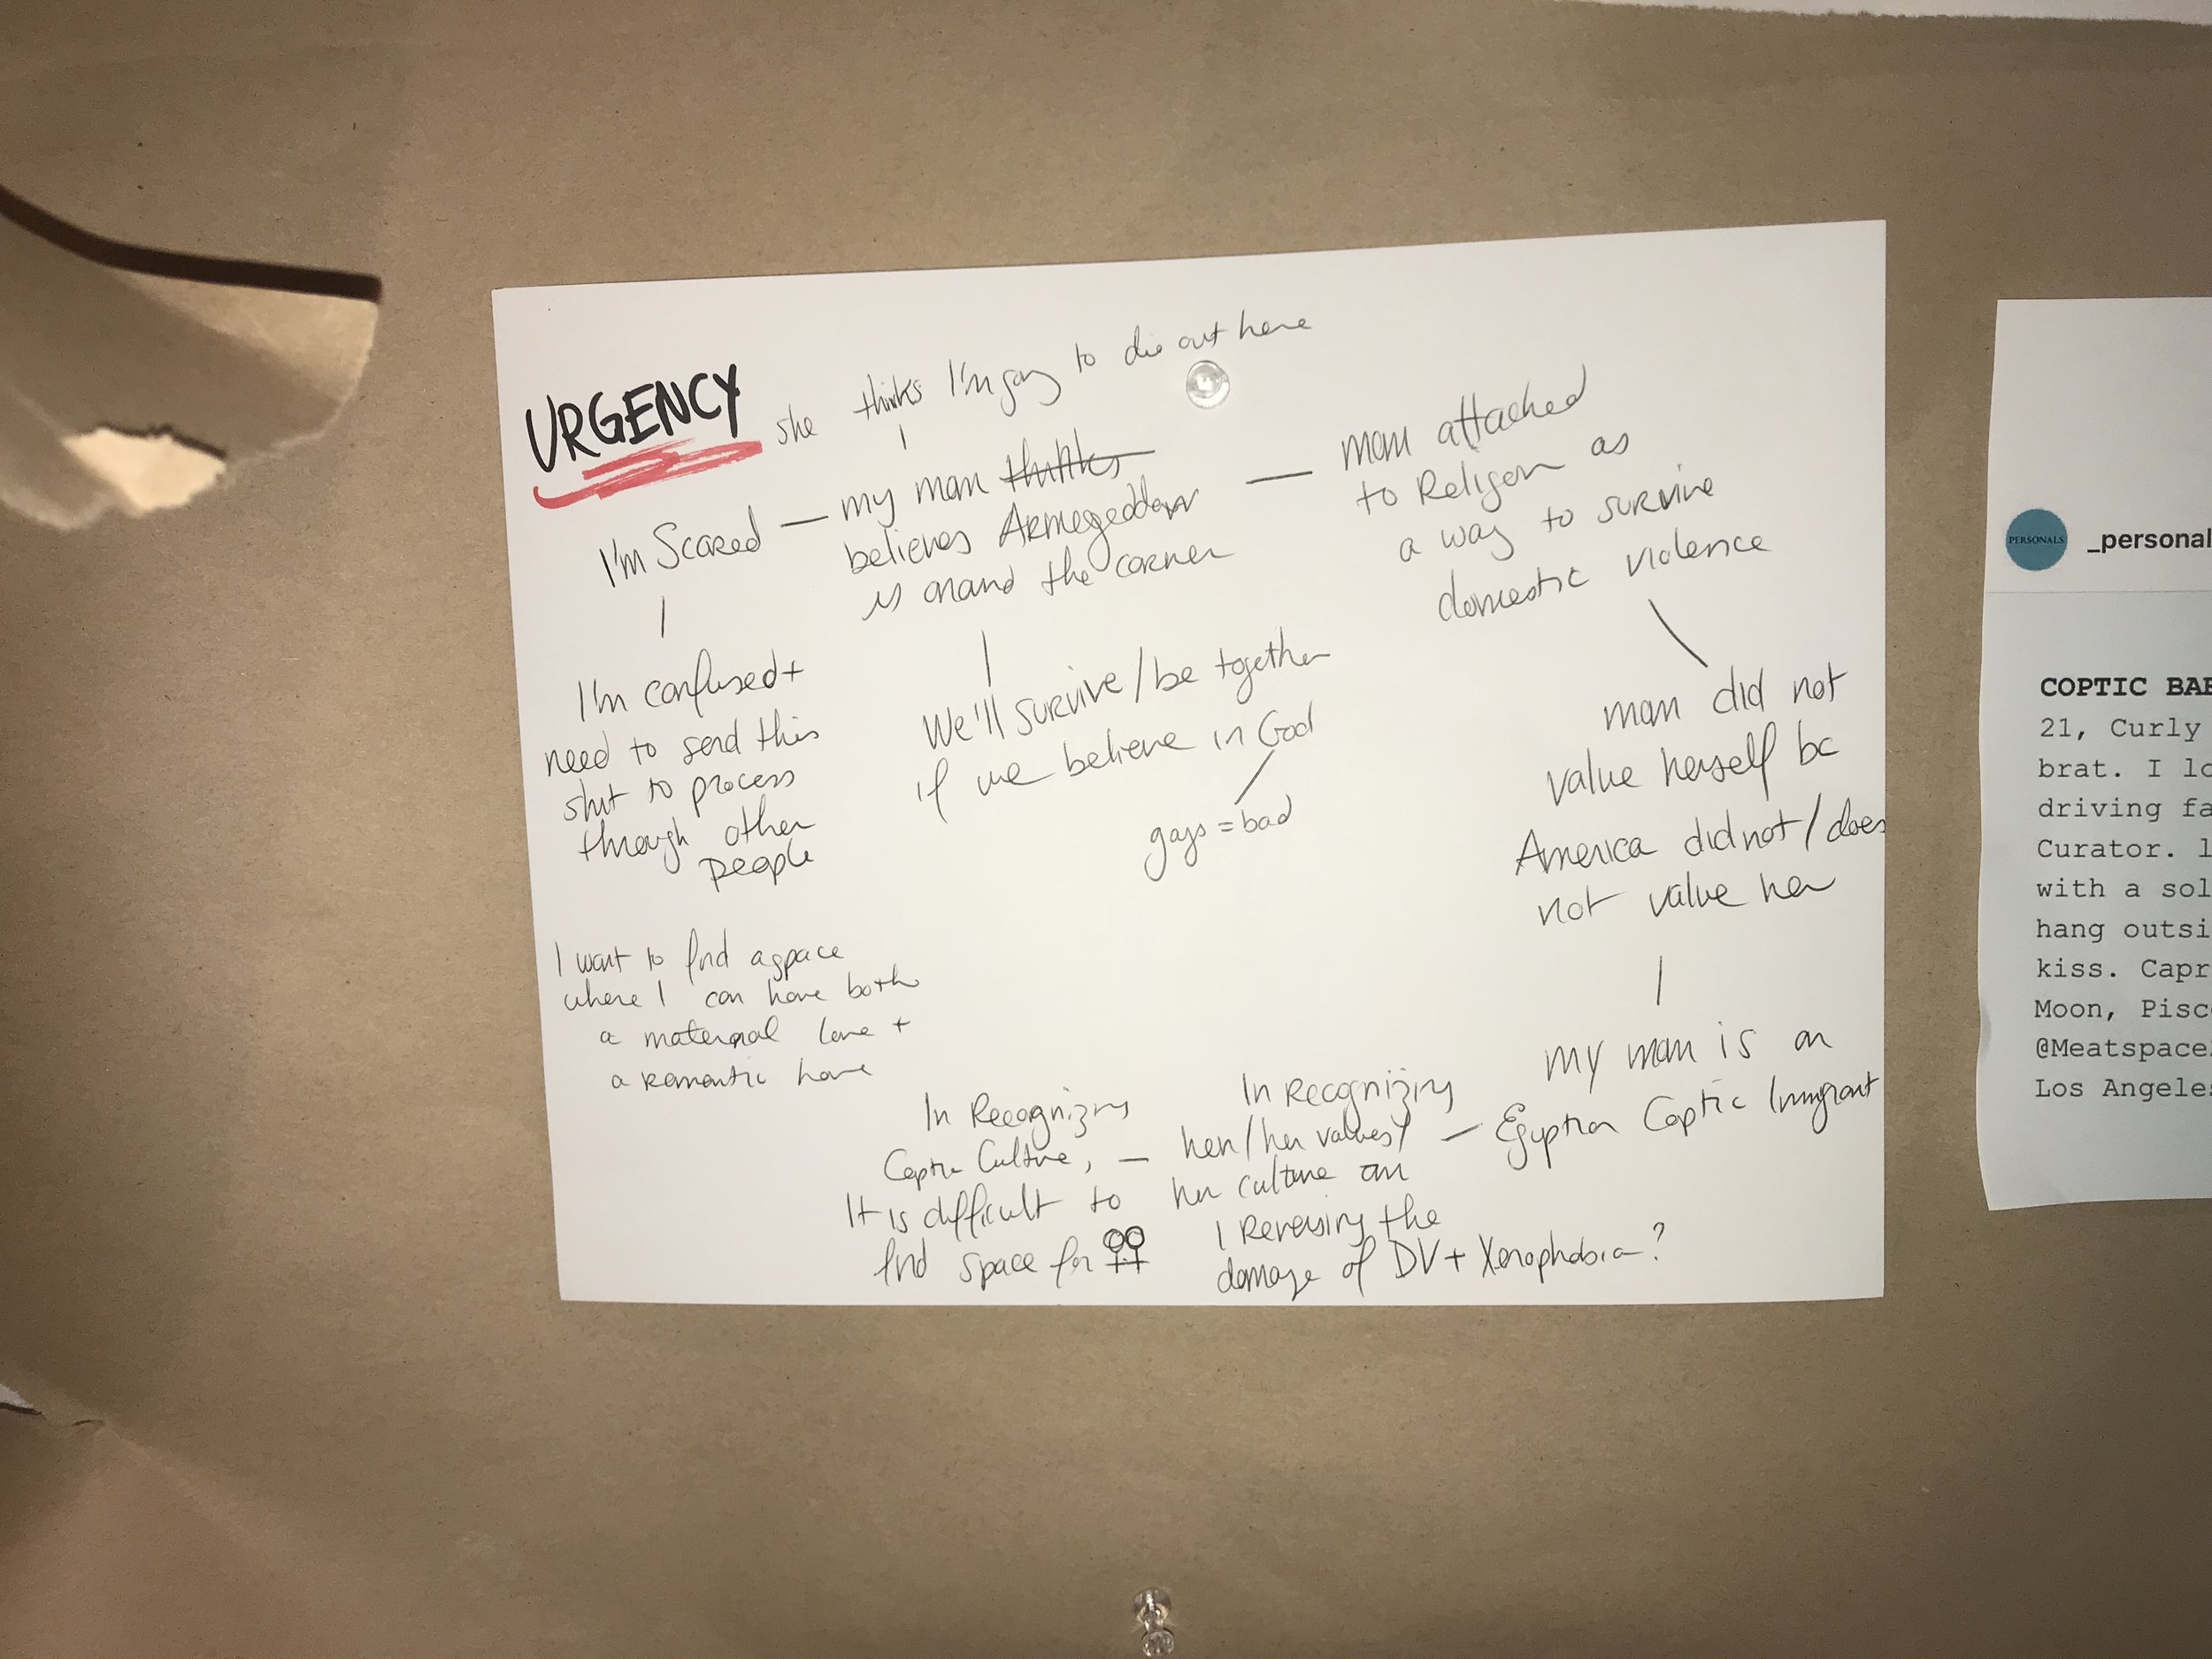 URGENCY
she thinks I'm going to die out here
I'm Scared — my mom thinks
believes Armegeddon
is around the corner
— mom attached
to Religion as
a way to survive
domestic violence
I'm confused +
need to send this
shit to process
through other
people
We'll survive/be together
if we believe in God
gays = bad
mom did not
value herself bc
America did not/does
not value her
I want to find a space
where I can have both
a maternal love +
a romantic love
my mom is an
Egyptian Coptic Immigrant
In Recognizing
her/her values/ —
her culture am
I Reversing the
damage of DV + Xenophobia?
In Recognizing
Coptic Culture, —
It is difficult to
find space for ♀♀
PERSONALS
_personal
COPTIC BAB
21, Curly
brat. I lo
driving fa
Curator. l
with a sol
hang outsi
kiss. Capr
Moon, Pisc
@Meatspace
Los Angeles